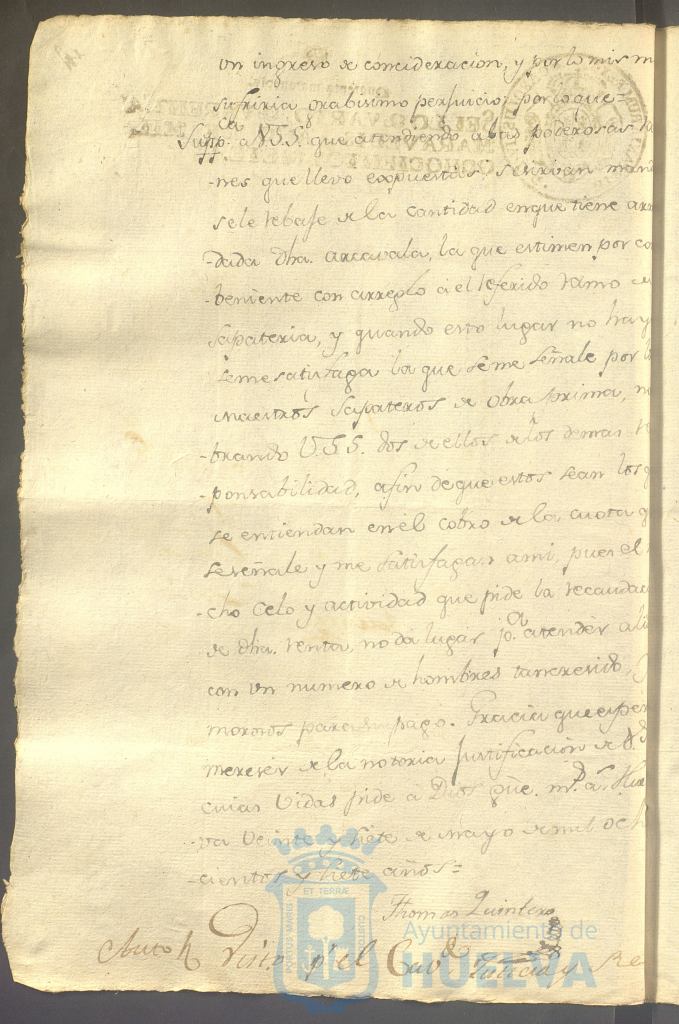 un ingreso de concideracion, y por lo mism
sufriria grabisimo perjuicio; por lo que
Suppca. a V.S.S. que atendiendo a las poderosas
-nes que llevo expuestas, se sirvan man
se le rebaje de la cantidad en que tiene arr
-dada dha. arcavala, la que estimen por co
-beniente con arreglo a el referido ramo de
Sapateria, y quando esto lugar no hay
se me satisfaga la que se me señale por l
Maestros Sapateros de obra prima, n
-brando V.S.S. dos de ellos de los de mas r
-ponsabilidad, a fin de que estos sean los q
se entiendan en el cobro de la cuota q
se señale y me satisfagan a mi, pues el
-cho celo y actividad que pide la recaudac
de dha. renta, no da lugar pa. atender a li
con un numero de hombres tan cresido,
morosos para su pago. Gracia que esper
merecer de la notoria justificacion de V.
cuias vidas pide a Dios gue. ms. as. Huel
-va veinte y siete de Mayo de mil och
-cientos y siete años=
Thomas Quintero
Auto Visto pr. el Cavdo. Justicia y Re
PORTUS MARIS
ET TERRÆ
CUSTODIA
Ayuntamiento de
HUELVA